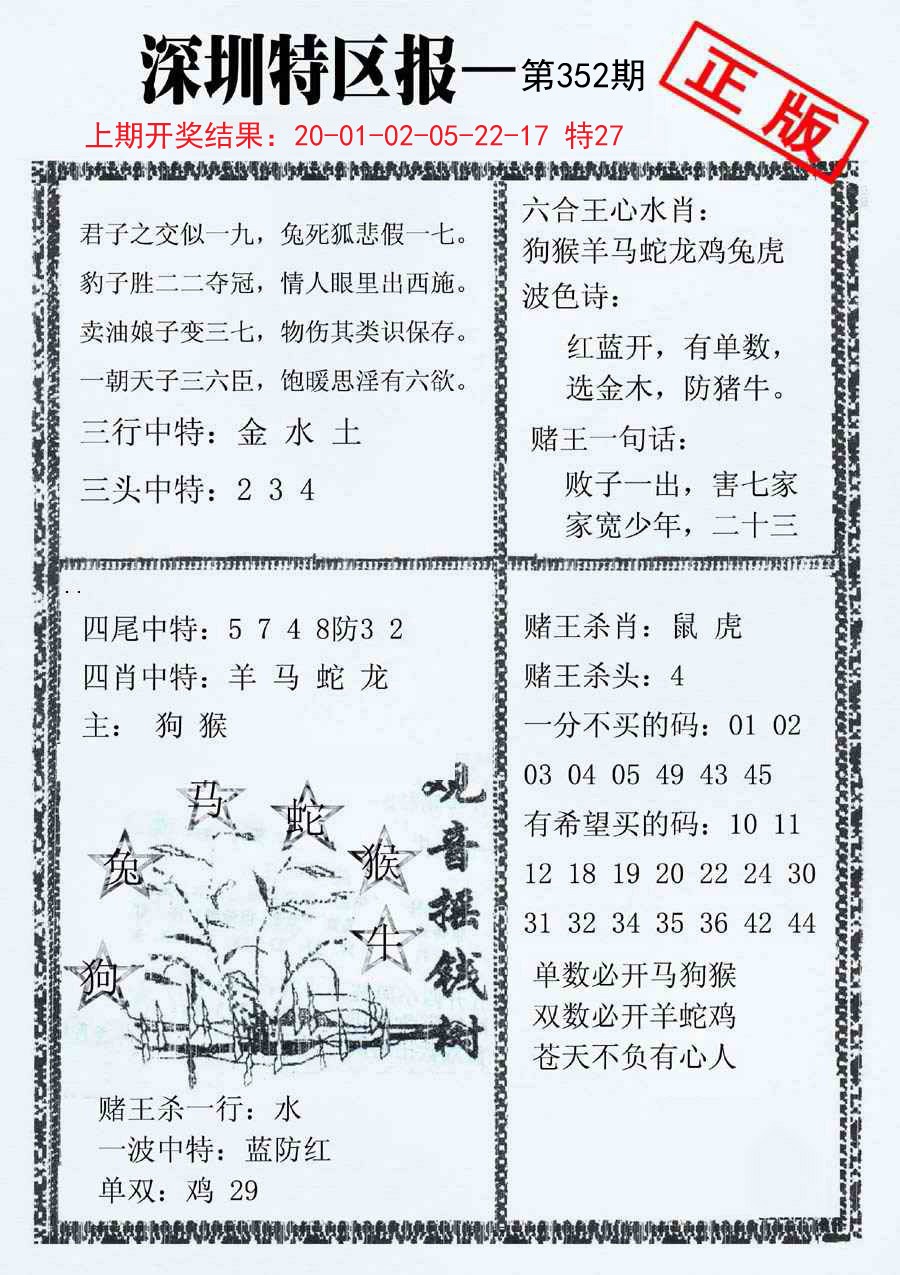 深圳特区报—第352期
正版
上期开奖结果：20-01-02-05-22-17 特27
君子之交似一九，兔死狐悲假一七。
豹子胜二二夺冠，情人眼里出西施。
卖油娘子变三七，物伤其类识保存。
一朝天子三六臣，饱暖思淫有六欲。
三行中特：金 水 土
三头中特：2 3 4
六合王心水肖：
狗猴羊马蛇龙鸡兔虎
波色诗：
红蓝开，有单数，
选金木，防猪牛。
赌王一句话：
败子一出，害七家
家宽少年，二十三
四尾中特：5 7 4 8防3 2
四肖中特：羊 马 蛇 龙
主： 狗 猴
马
蛇
兔
猴
牛
狗
观音摇钱树
赌王杀一行：水
一波中特：蓝防红
单双：鸡 29
赌王杀肖：鼠 虎
赌王杀头：4
一分不买的码：01 02
03 04 05 49 43 45
有希望买的码：10 11
12 18 19 20 22 24 30
31 32 34 35 36 42 44
单数必开马狗猴
双数必开羊蛇鸡
苍天不负有心人